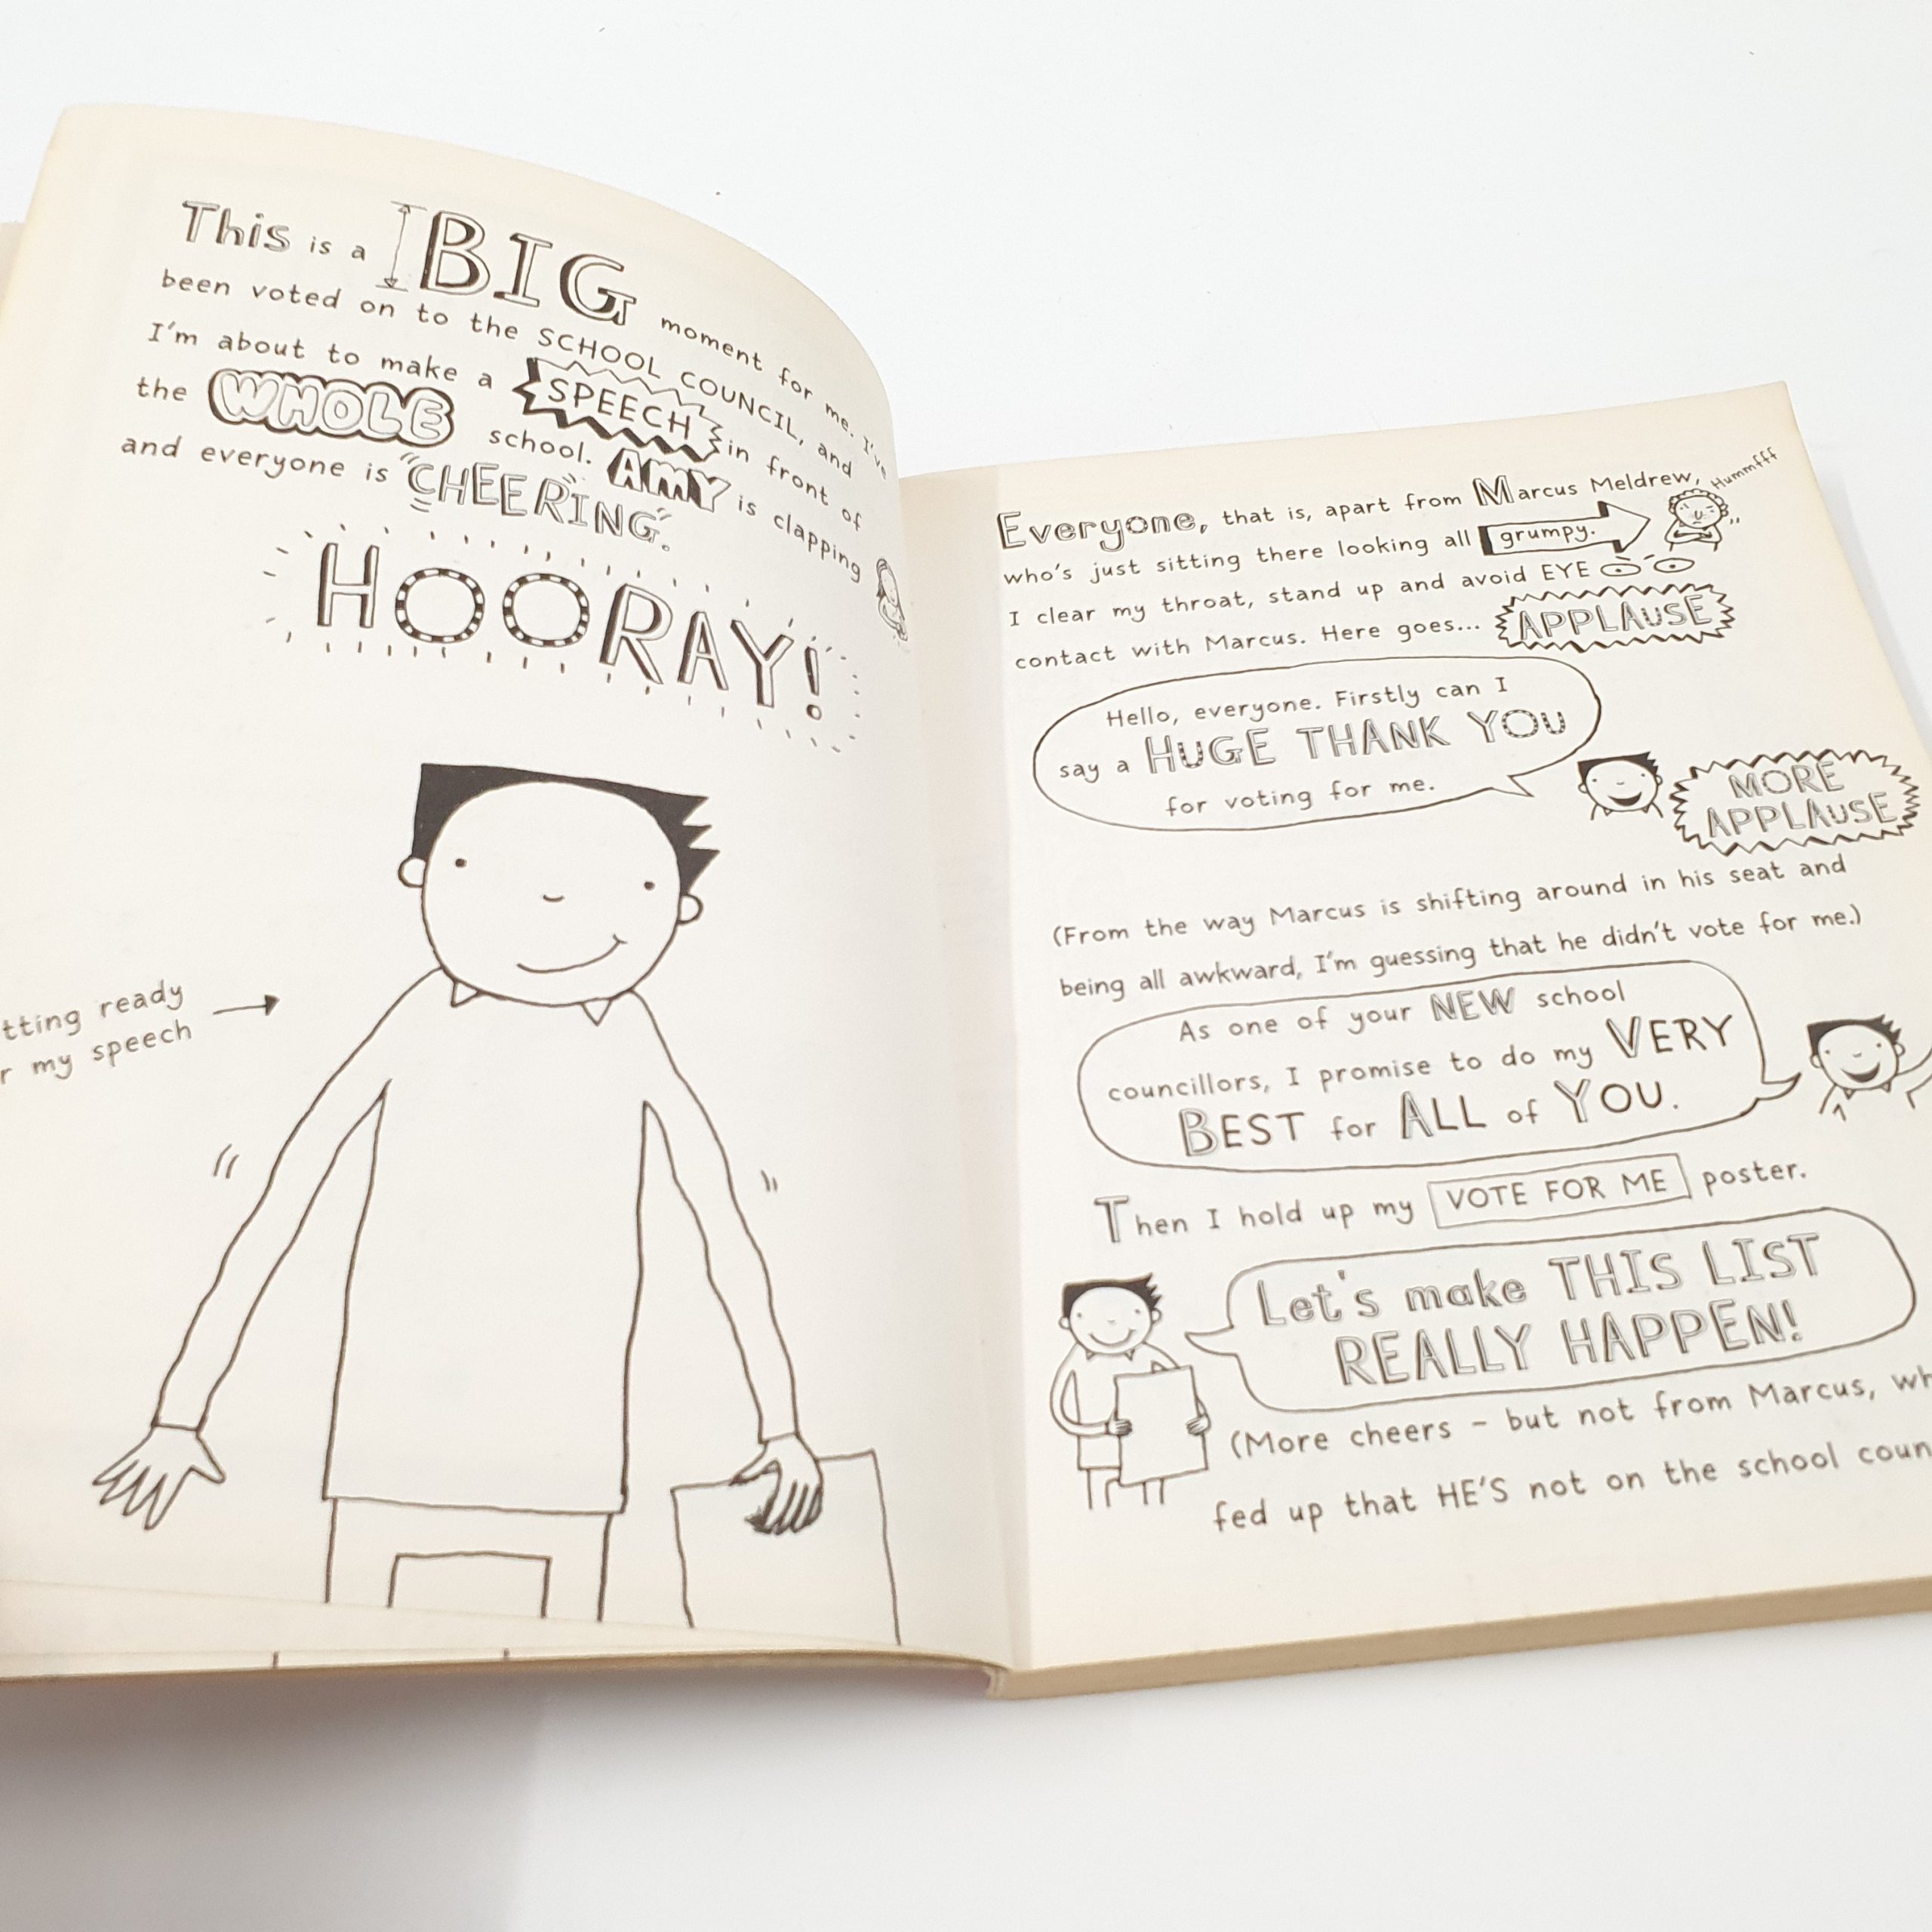 This is a BIG moment for me. I've
been voted on to the SCHOOL COUNCIL, and
I'm about to make a SPEECH in front of
the WHOLE school. AMY is clapping
and everyone is CHEERING.
HOORAY!
tting ready
r my speech
Everyone, that is, apart from Marcus Meldrew,
Hummfff
who's just sitting there looking all grumpy.
I clear my throat, stand up and avoid EYE
contact with Marcus. Here goes...
APPLAUSE
Hello, everyone. Firstly can I
say a HUGE THANK YOU
for voting for me.
MORE
APPLAUSE
(From the way Marcus is shifting around in his seat and
being all awkward, I'm guessing that he didn't vote for me.)
As one of your NEW school
councillors, I promise to do my VERY
BEST for ALL of YOU.
Then I hold up my VOTE FOR ME poster.
Let's make THIS LIST
REALLY HAPPEN!
(More cheers – but not from Marcus, wh
fed up that HE'S not on the school coun